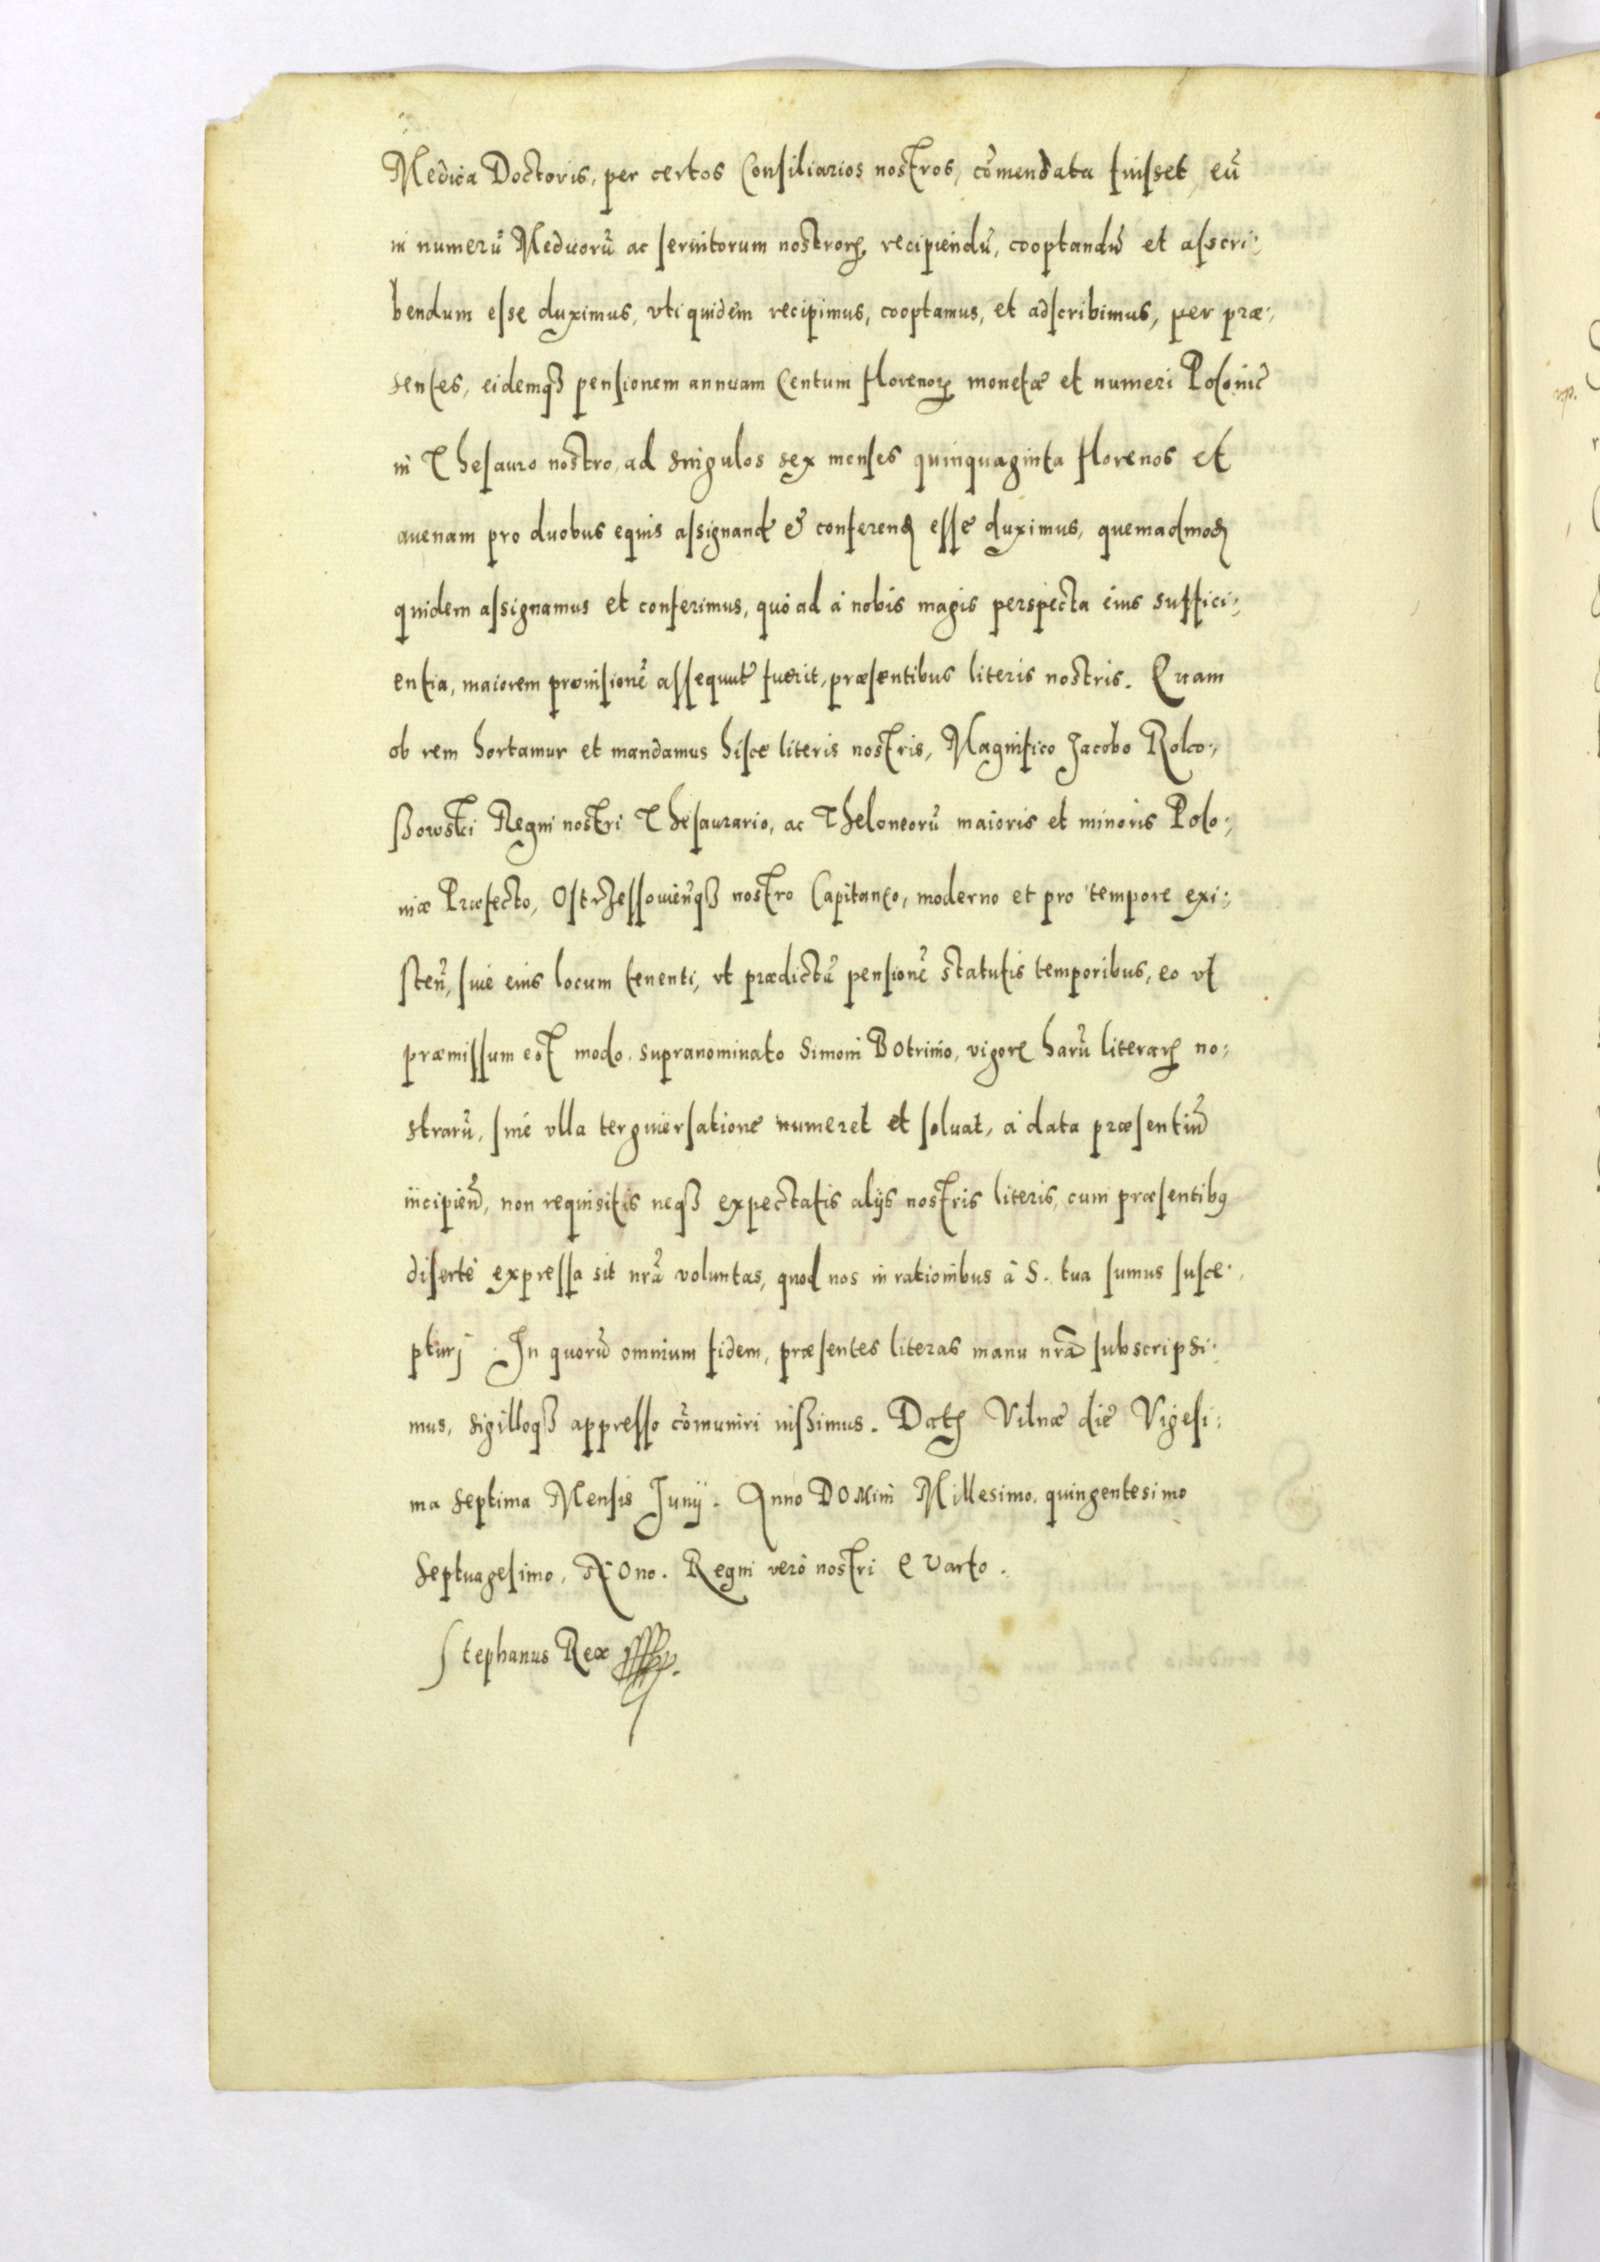 Medica Doctoris, per certos Consiliarios nostros, cōmendata fuisset, eū
in numerū Medicorū ac seruitorum nostrorꝝ recipiendū, cooptandū et asscri:
bendum esse duximus, vti quidem recipimus, cooptamus, et adscribimus, per præ:,
sentes, eidemqꝫ pensionem annuam Centum florenorꝝ monetæ et numeri Polonic̄
in Thesauro nostro, ad singulos sex menses quinquaginta florenos et
auenam pro duobus equis assignand̄ & conferend̄ esse duximus, quemadmod̄
quidem assignamus et conferimus, quò ad à nobis magis perspecta eius suffici:,
entia, maiorem prouisionē assequut̄ fuerit, præsentibus literis nostris. Quam
ob rem hortamur et mandamus hisce literis nostris, Magnifico Jacobo Roko:,
ßowski Regni nostri Thesaurario, ac Theloneorū maioris et minoris Polo:,
niæ Præfecto, Ostrzessouien̄qꝫ nostro Capitaneo, moderno et pro tempore exi:,
sten̄, siue eius locum tenenti, vt prædictā pensionē statutis temporibus, eo vt
præmissum est modo, supranominato Simoni Botrinio, vigore harū literarꝝ no:
strarū, sine vlla terguiersatione numeret et soluat, à data præsentiū
incipien̄, non requisitis neqꝫ expectatis alijs nostris literis, cum præsentibꝰ
disertè expressa sit nr̄a voluntas, quod nos in rationibus à S. tua sumus susce:
pturj. In quorū omnium fidem, præsentes literas manu nr̄a subscripsi:
mus, sigilloqꝫ appresso cōmuniri iußimus. Datꝝ Vilnæ die Vigesi:
ma septima Mensis Junij. Anno DOMini Millesimo, quingentesimo
Septuagesimo, NOno. Regni verò nostri QVarto.
Stephanus Rex